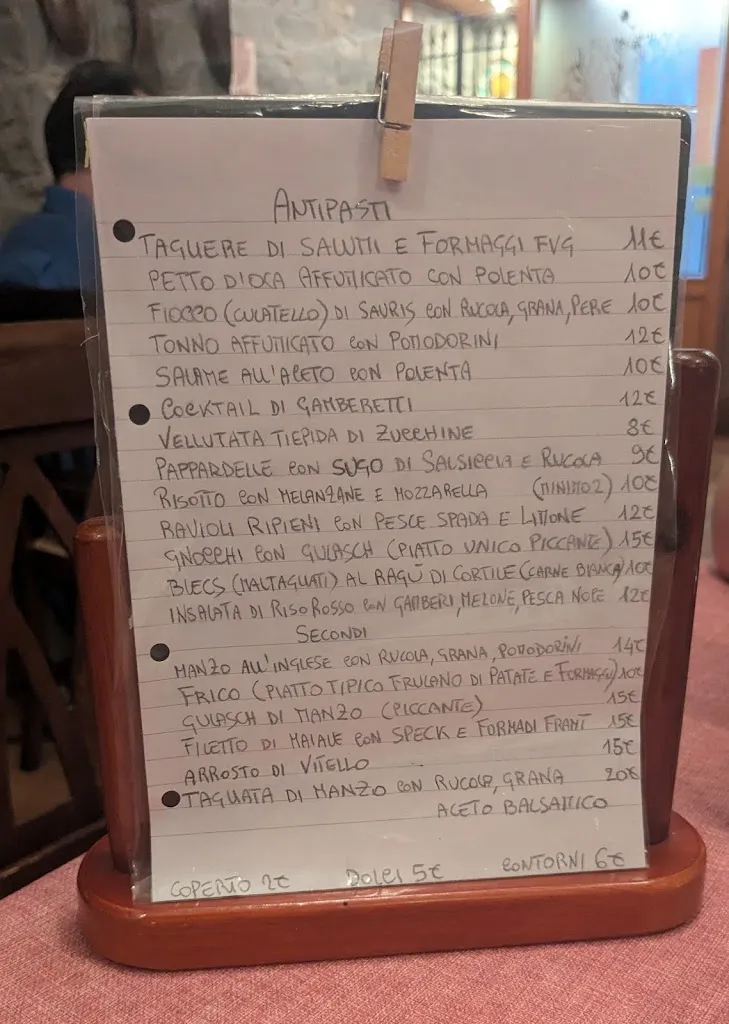 ANTIPASTI
TAGLIERE DI SALUMI E FORMAGGI FVG 11€
PETTO D'OCA AFFUMICATO CON POLENTA 10€
FIOCCO (CULATELLO) DI SAURIS CON RUCOLA, GRANA, PERE 10€
TONNO AFFUMICATO CON POMODORINI 12€
SALAME ALL'ACETO CON POLENTA 10€
COCKTAIL DI GAMBERETTI 12€
VELLUTATA TIEPIDA DI ZUCCHINE 8€
PAPPARDELLE CON SUGO DI SALSICCIA E RUCOLA 9€
RISOTTO CON MELANZANE E MOZZARELLA (MINIMO 2) 10€
RAVIOLI RIPIENI CON PESCE SPADA E LIMONE 12€
GNOCCHI CON GULASCH (PIATTO UNICO PICCANTE) 15€
BLECS (MALTAGLIATI) AL RAGÙ DI CORTILE (CARNE BIANCA) 10€
INSALATA DI RISO ROSSO CON GAMBERI, MELONE, PESCA NOCE 12€
SECONDI
MANZO ALL'INGLESE CON RUCOLA, GRANA, POMODORINI 14€
FRICO (PIATTO TIPICO FRIULANO DI PATATE E FORMAGGI) 10€
GULASCH DI MANZO (PICCANTE) 15€
FILETTO DI MAIALE CON SPECK E FORMADI FRANT 15€
ARROSTO DI VITELLO 15€
TAGLIATA DI MANZO CON RUCOLA, GRANA 20€
ACETO BALSAMICO
COPERTO 2€ DOLCI 5€ CONTORNI 6€